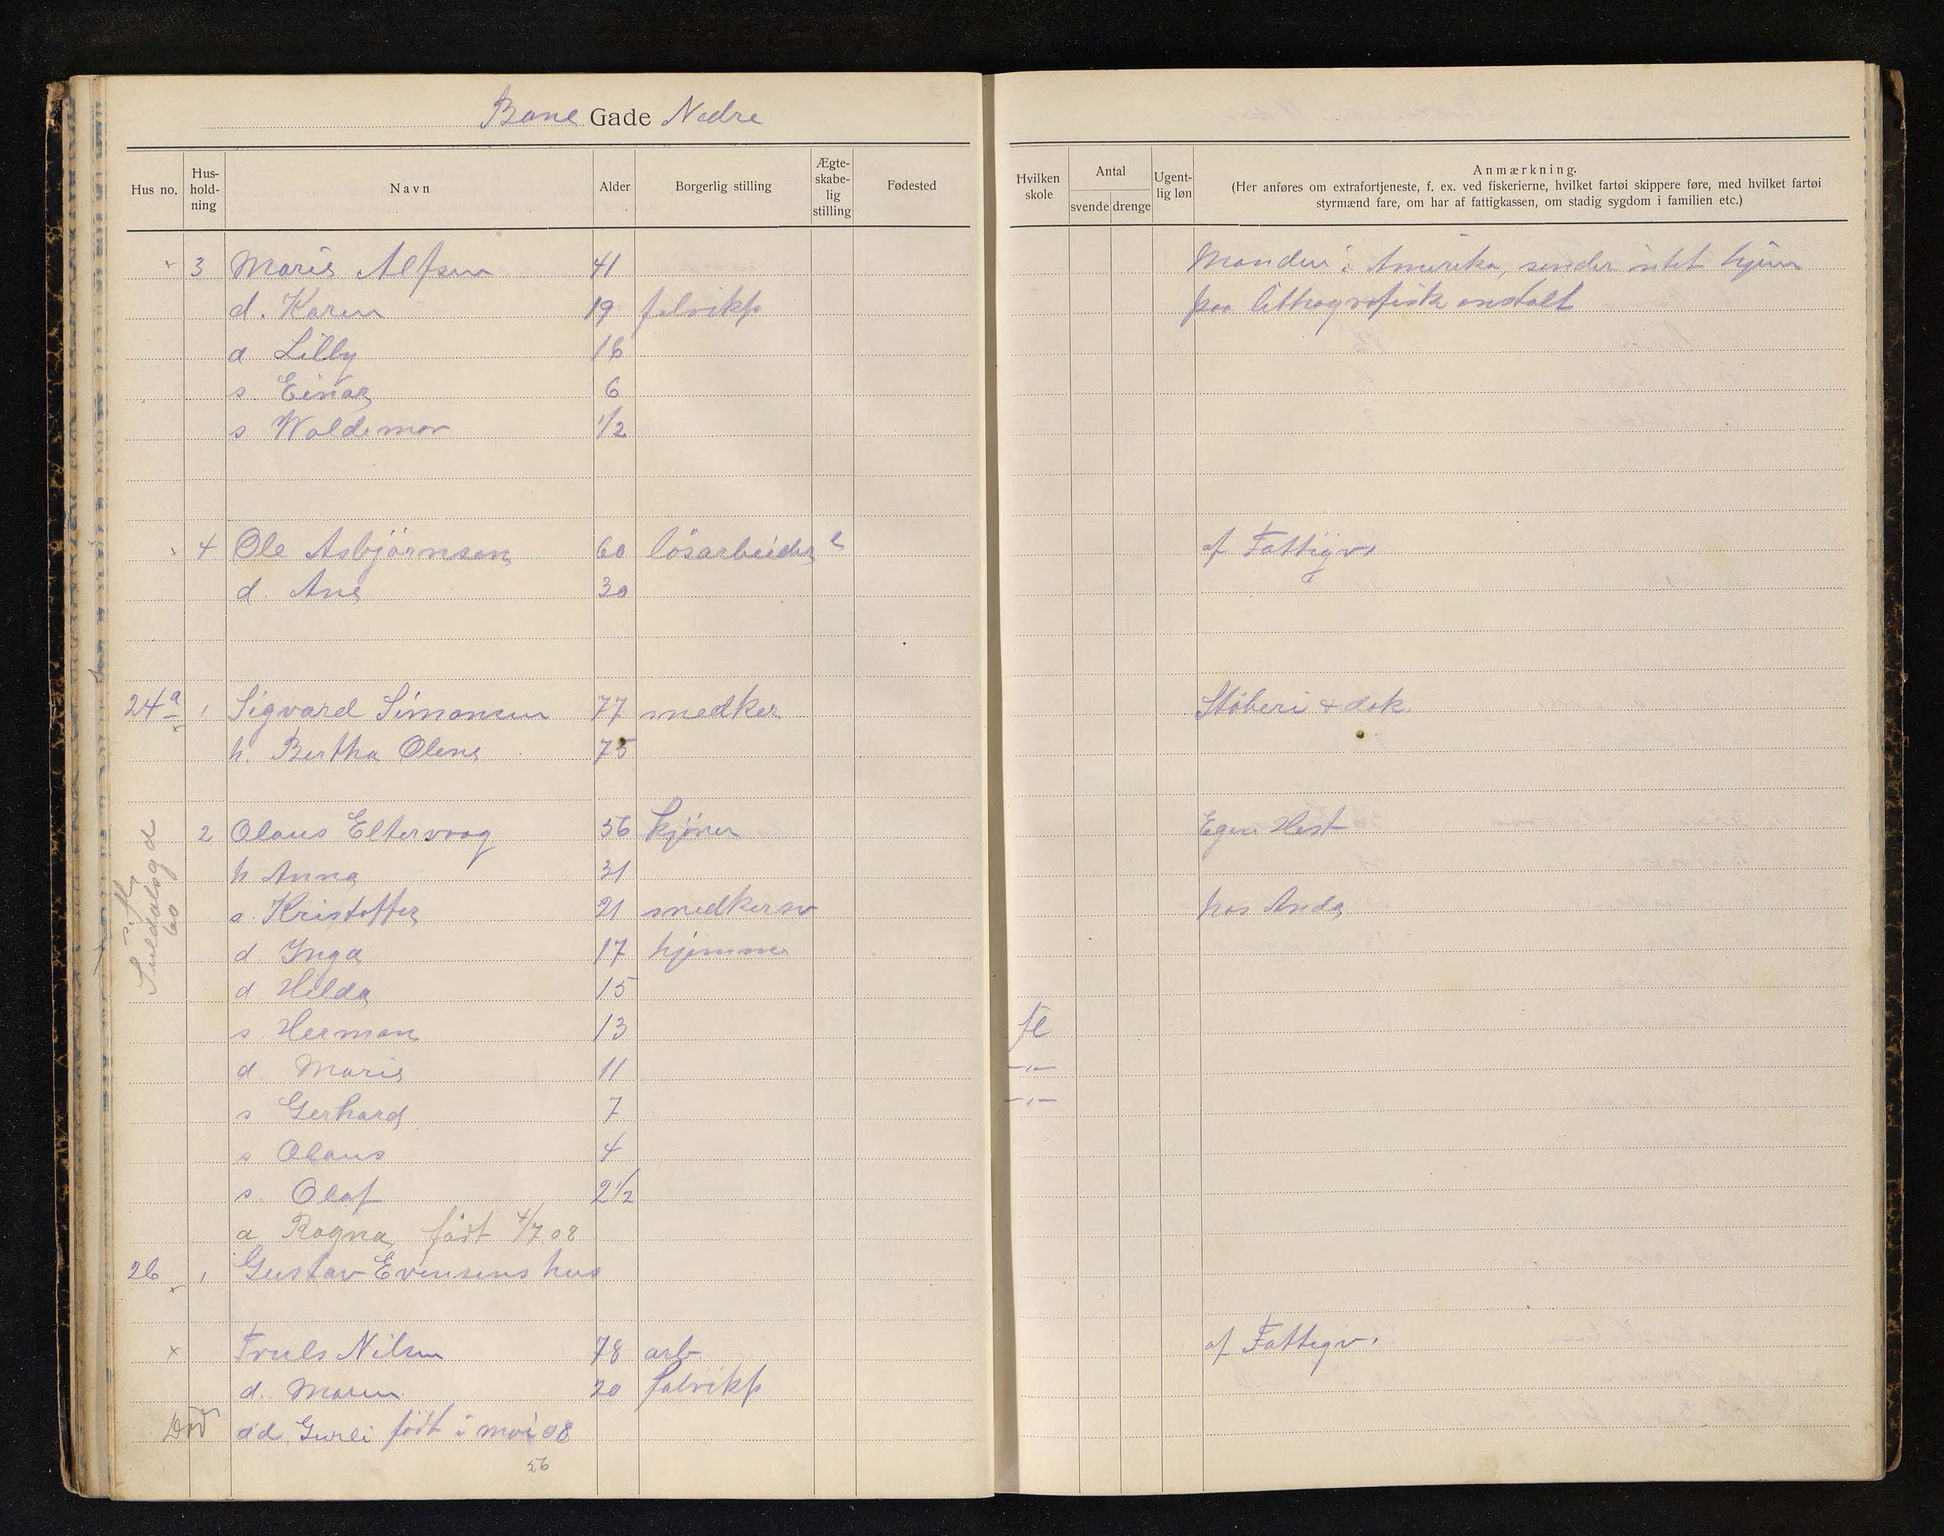 Bane Gade Nedre
Hus no. Hus-hold-ning Navn Alder Borgerlig stilling Ægte-skabe-lig stilling Fødested Hvilken skole Antal svende drenge Ugent-lig løn Anmærkning.
(Her anføres om extrafortjeneste, f. ex. ved fiskerierne, hvilket fartøi skippere føre, med hvilket fartøi
styrmænd fare, om har af fattigkassen, om stadig sygdom i familien etc.)
3 Marie Alfsen 41 Manden i Amerika, sender intet hjem
d. Karen 19 fabrikp paa lithografisk anstalt
d Lilly 16
s. Einar 6
s Waldemar 1/2
4 Ole Asbjørnsen 60 løsarbeider e af Fattigv.
d. Ane 30
24a 1 Sigvard Simonsen 77 snedker Støberi & dok
h. Bertha Oline 75
2 Olaus Eltervaag 56 kjører Egen Hest
h Anna 31
s. Kristoffer 21 snedkersv hos Anda
d Inga 17 hjemme
d Hilda 15
s. Herman 13 fl
d Marie 11 —"—
s Gerhard 7 —"—
s Olaus 4
s. Olaf 2 1/2
d Ragna, født 4/7 08
Suldalsgd
60
26 1 Gustav Evensens hus
Truls Nilsen 78 arb af Fattigv.
d. Maren 20 fabrikp
Død dd. Gurli født i mai 08
56